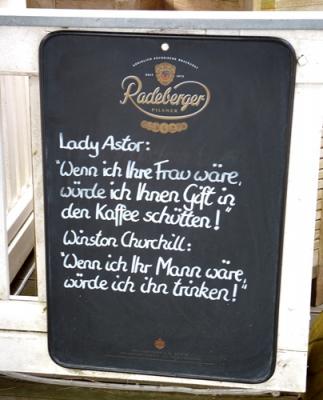 Radeberger
PILSNER
Lady Astor:
"Wenn ich Ihre Frau wäre,
würde ich Ihnen Gift in
den Kaffee schütten!"
Winston Churchill:
"Wenn ich Ihr Mann wäre,
würde ich ihn trinken!"